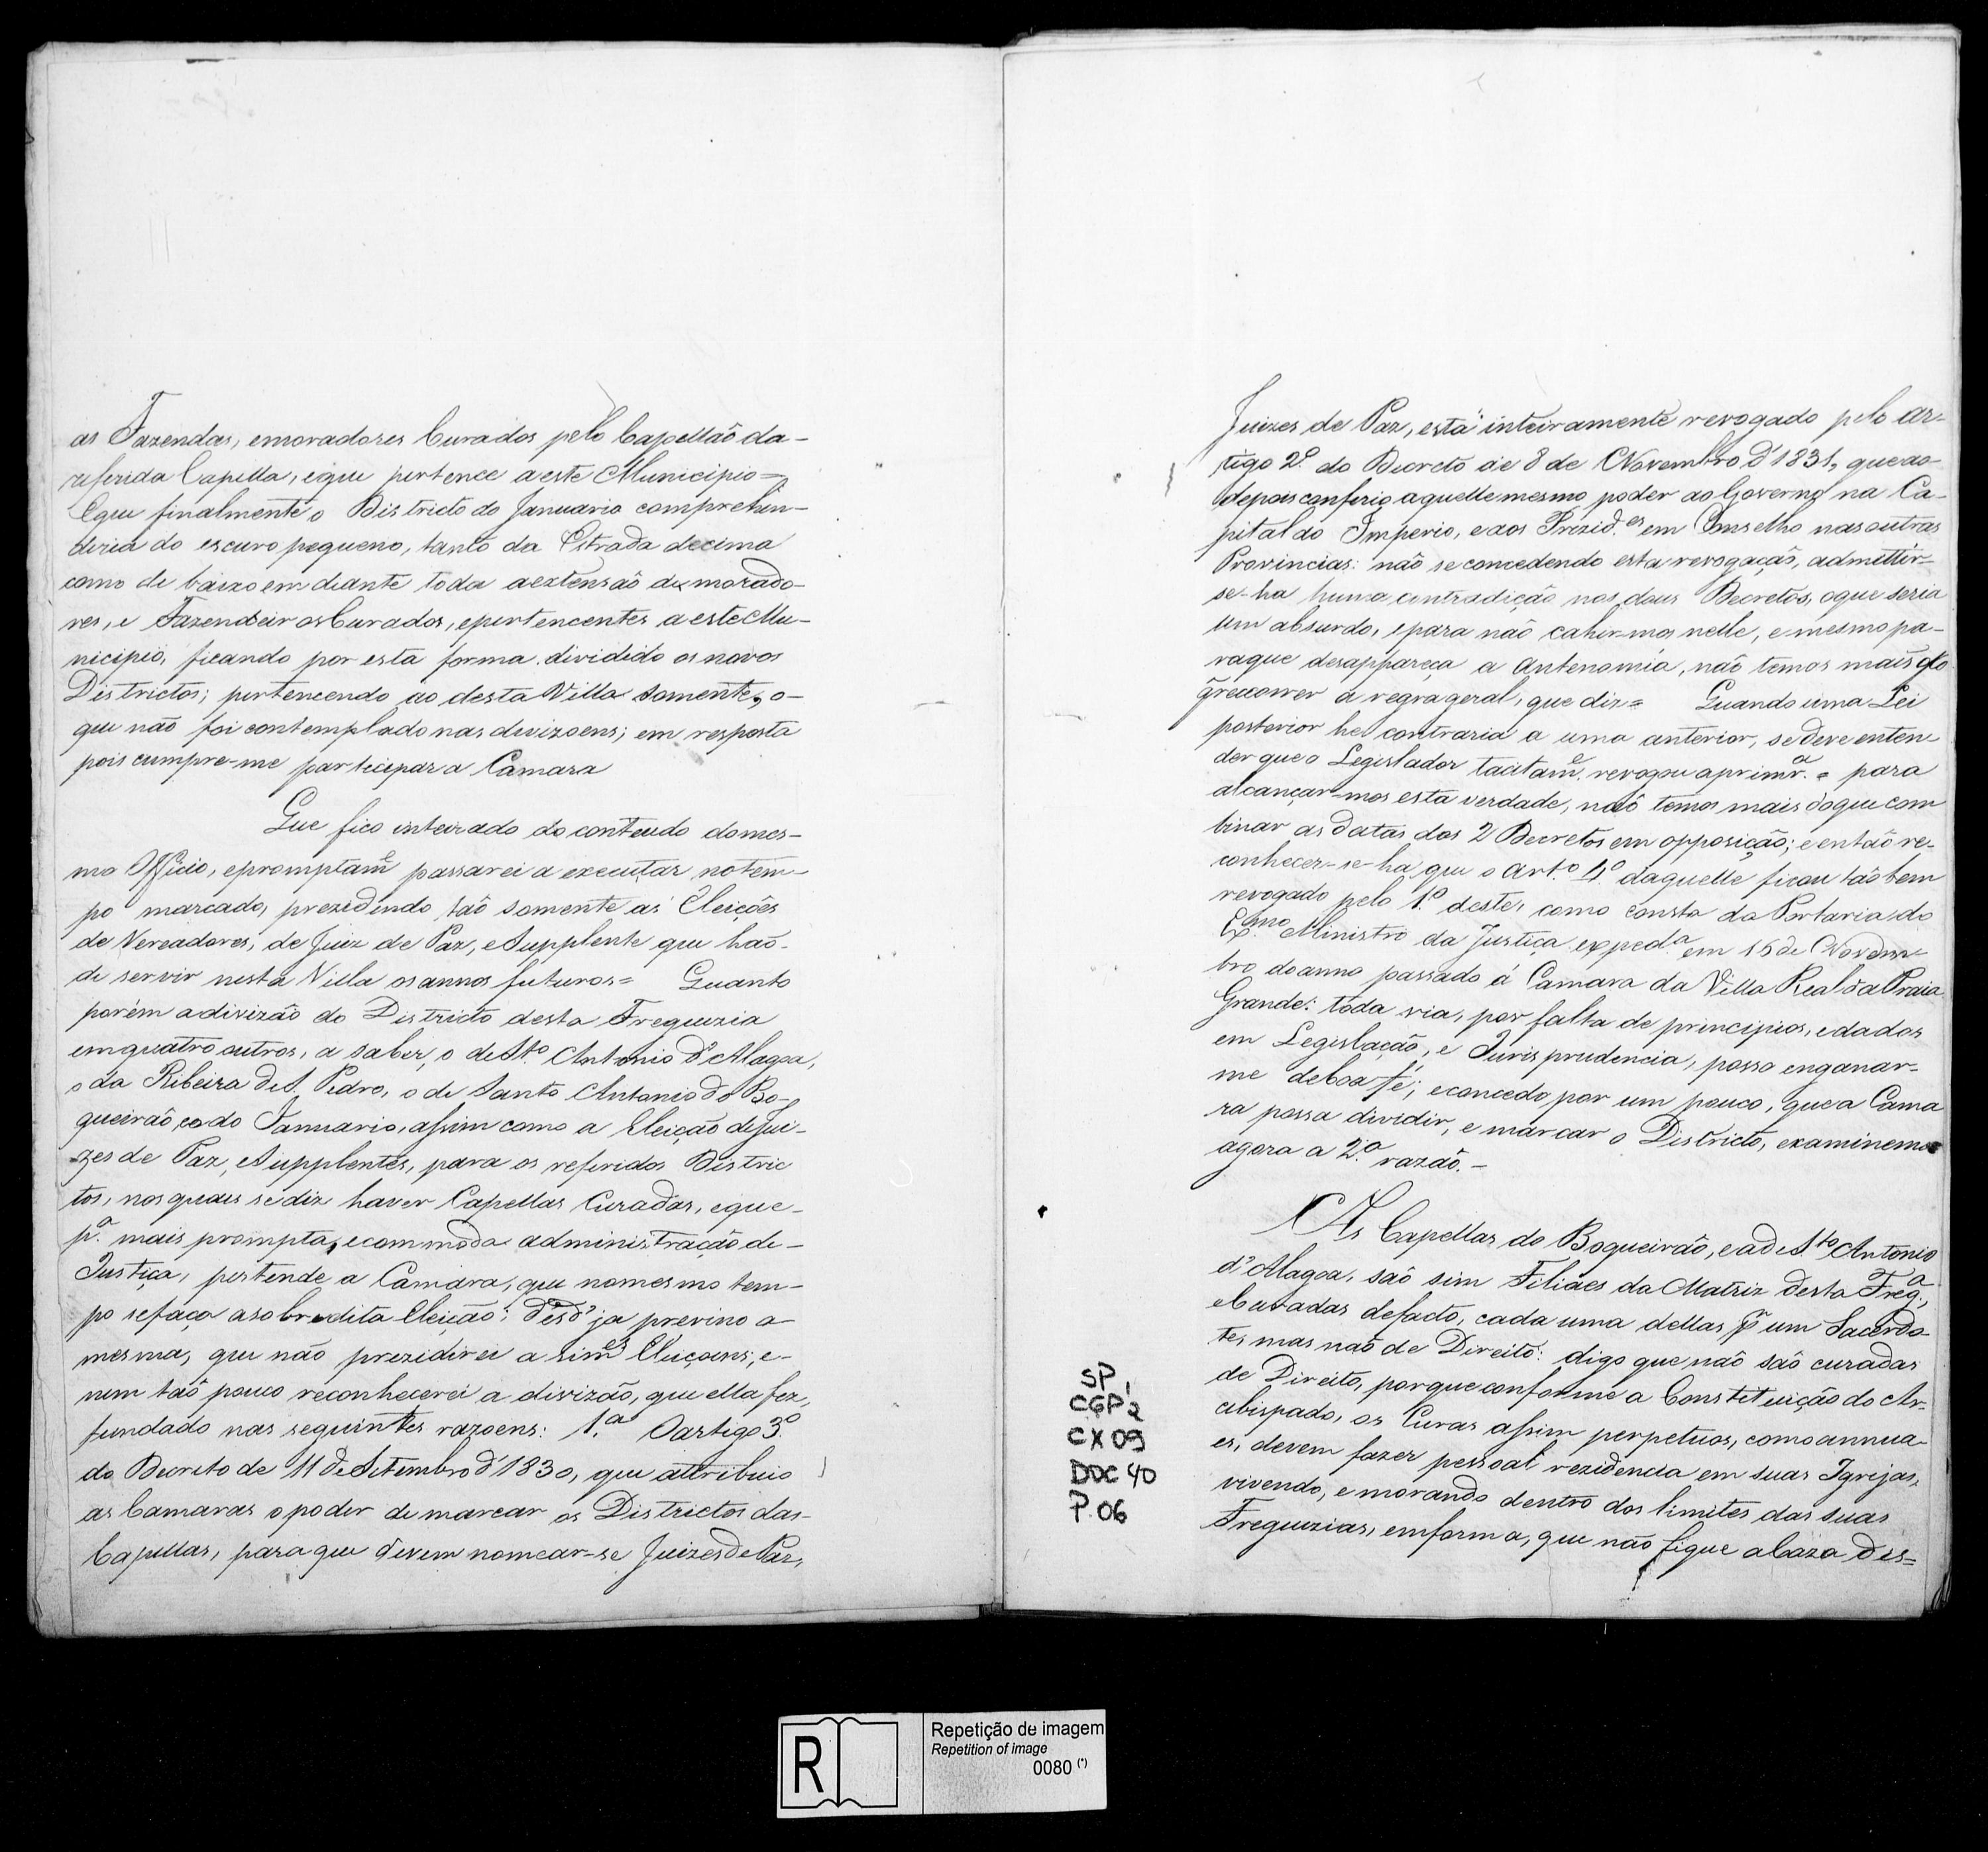 as Fazendas, emoradores Curados pelo Capellaõ da-
referida Capella, eque pertence aeste Municipio=
Eque finalmente o Districto do Januario comprehen-
deria do escuro pequeno, tanto da Estrada decima
como de baixo em diante toda aextensaõ de morado-
res, e Fazendeiros Curados, epertencentes a este Mu-
nicipio, ficando por esta forma dividido os novos
Districtos; pertencendo ao desta Villa somente, o-
que naõ foi contemplado nas divizoens; em resposta
pois cumpre-me participar a Camara
Que fico inteirado do conteudo domes-
mo Officio, epromptam.e passarei a executar notem-
po marcado, prezidindo taõ somente as Eleições
de Vereadores, de Juiz de Paz, eSupplente que haõ-
de servir nesta Villa os annos futuros= Quanto
porém adivizaõ do Districto desta Freguezia
emquatro outros, a saber, o deSt.o Antonio d'Alagoa,
o da Ribeira deS. Pedro, o de Santo Antonio do Bo-
queiraõ, eodo Januario, assim como a Eleiçaõ deJui-
zes de Paz, eSupplentes, para os referidos Distric
tos, nos quaes sediz haver Capellas Curadas, eque-
p.a mais prompta, ecommoda administraçaõ de-
Justiça, pertende a Camara, que nomesmo tem-
po sefaça asobredita Eleiçaõ; desd'ja previno a-
mesma, que não prezidirei a sim.es Eleiçoens, e-
nem taõ pouco reconhecerei a divizaõ, que ella fez,
fundado nas seguintes razoens: 1.a Oartigo 3.o
do Decreto de 11 deSetembro d'1830, que attribuio
as Camaras o poder de marcar os Districtos das-
Capellas, para que devem nomear-se Juizes de Paz,
Juizes de Paz, está inteiramente revogado pelo ar-
tigo 2.o do Decreto de 8 de Novembro d'1831, que ao
depois conferio aquelle mesmo poder ao Governo na Ca-
pital do Imperio, eaos Prezid.es em Conselho nas outras
Provincias: naõ se concedendo esta revogaçaõ, admittir-
se-ha huma contradiçaõ nos dous Decretos, oque seria
um absurdo, epara naõ cahir-mos nelle, e mesmo pa-
raque desappareça a Antenomia, naõ temos mais do
q recorrer a regra geral, que diz= Quando uma Lei
posterior he contraria a uma anterior, sedeve enten-
der que o Legislador tacitam.e revogou aprimr.a = para
alcançar-mos esta verdade, naõ temos mais doque com
binar as datas dos 2 Decretos em opposiçaõ; e entaõ re-
conhecer-se-ha que o Art.o 4.o daquelle ficou taõbem
revogado pelo 1.o deste, como consta da Portaria do
Ex.mo Ministro da Justiça exped.a em 15 de Novem-
bro doanno passado á Camara da Villa Real da Praia
Grande: toda via, por falta de principios, edados
em Legislaçaõ, e Jurisprudencia, posso enganar-
me deboa fé; econcedo por um pouco, quea Cama
ra possa dividir, e marcar o Districto, examinemos
agora a 2.a razaõ.-
As Capellas do Boqueiraõ, eadeSt.o Antonio
d'Alagoa, saõ sim Filiaes da Matriz desta Freg.a,
eCuradas defacto, cada uma dellas p.r um Sacerdo-
te, mas naõ de Direito: digo que naõ saõ curadas
de Direito, porque conforme a Constituiçaõ do Ar-
cebispado, os Curas assim perpetuos, como annua-
es, devem fazer pessoal rezidencia em suas Igrejas,
vivendo, e morando dentro dos limites das suas
Freguezias, emforma, que não fique aCaza des=
SP1
CGP2
CX 09
DOC 40
P. 06
R
Repetição de imagem
Repetition of image
0080 (*)